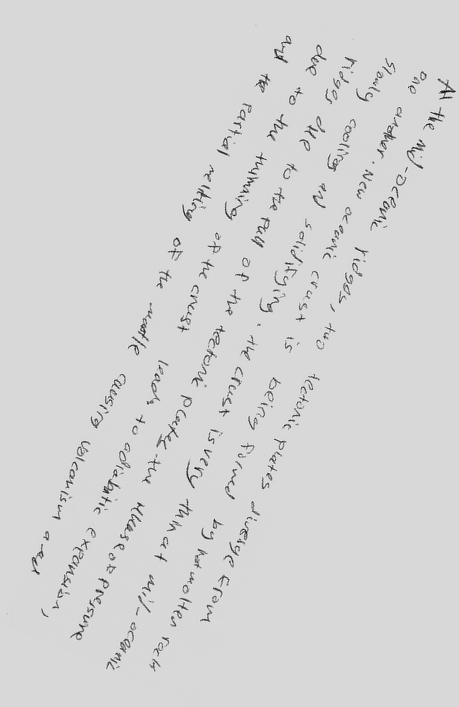 At the mid-oceanic ridges, two tectonic plates diverge from
one another. New oceanic crust is being formed by hot molten rock
slowly cooling and solidifying. The crust is very thin at mid-oceanic
ridges due to the pull of the tectonic plates. The release of pressure
due to the thinning of the crust leads to adiabatic expansion,
and the partial melting of the mantle causing volcanism and